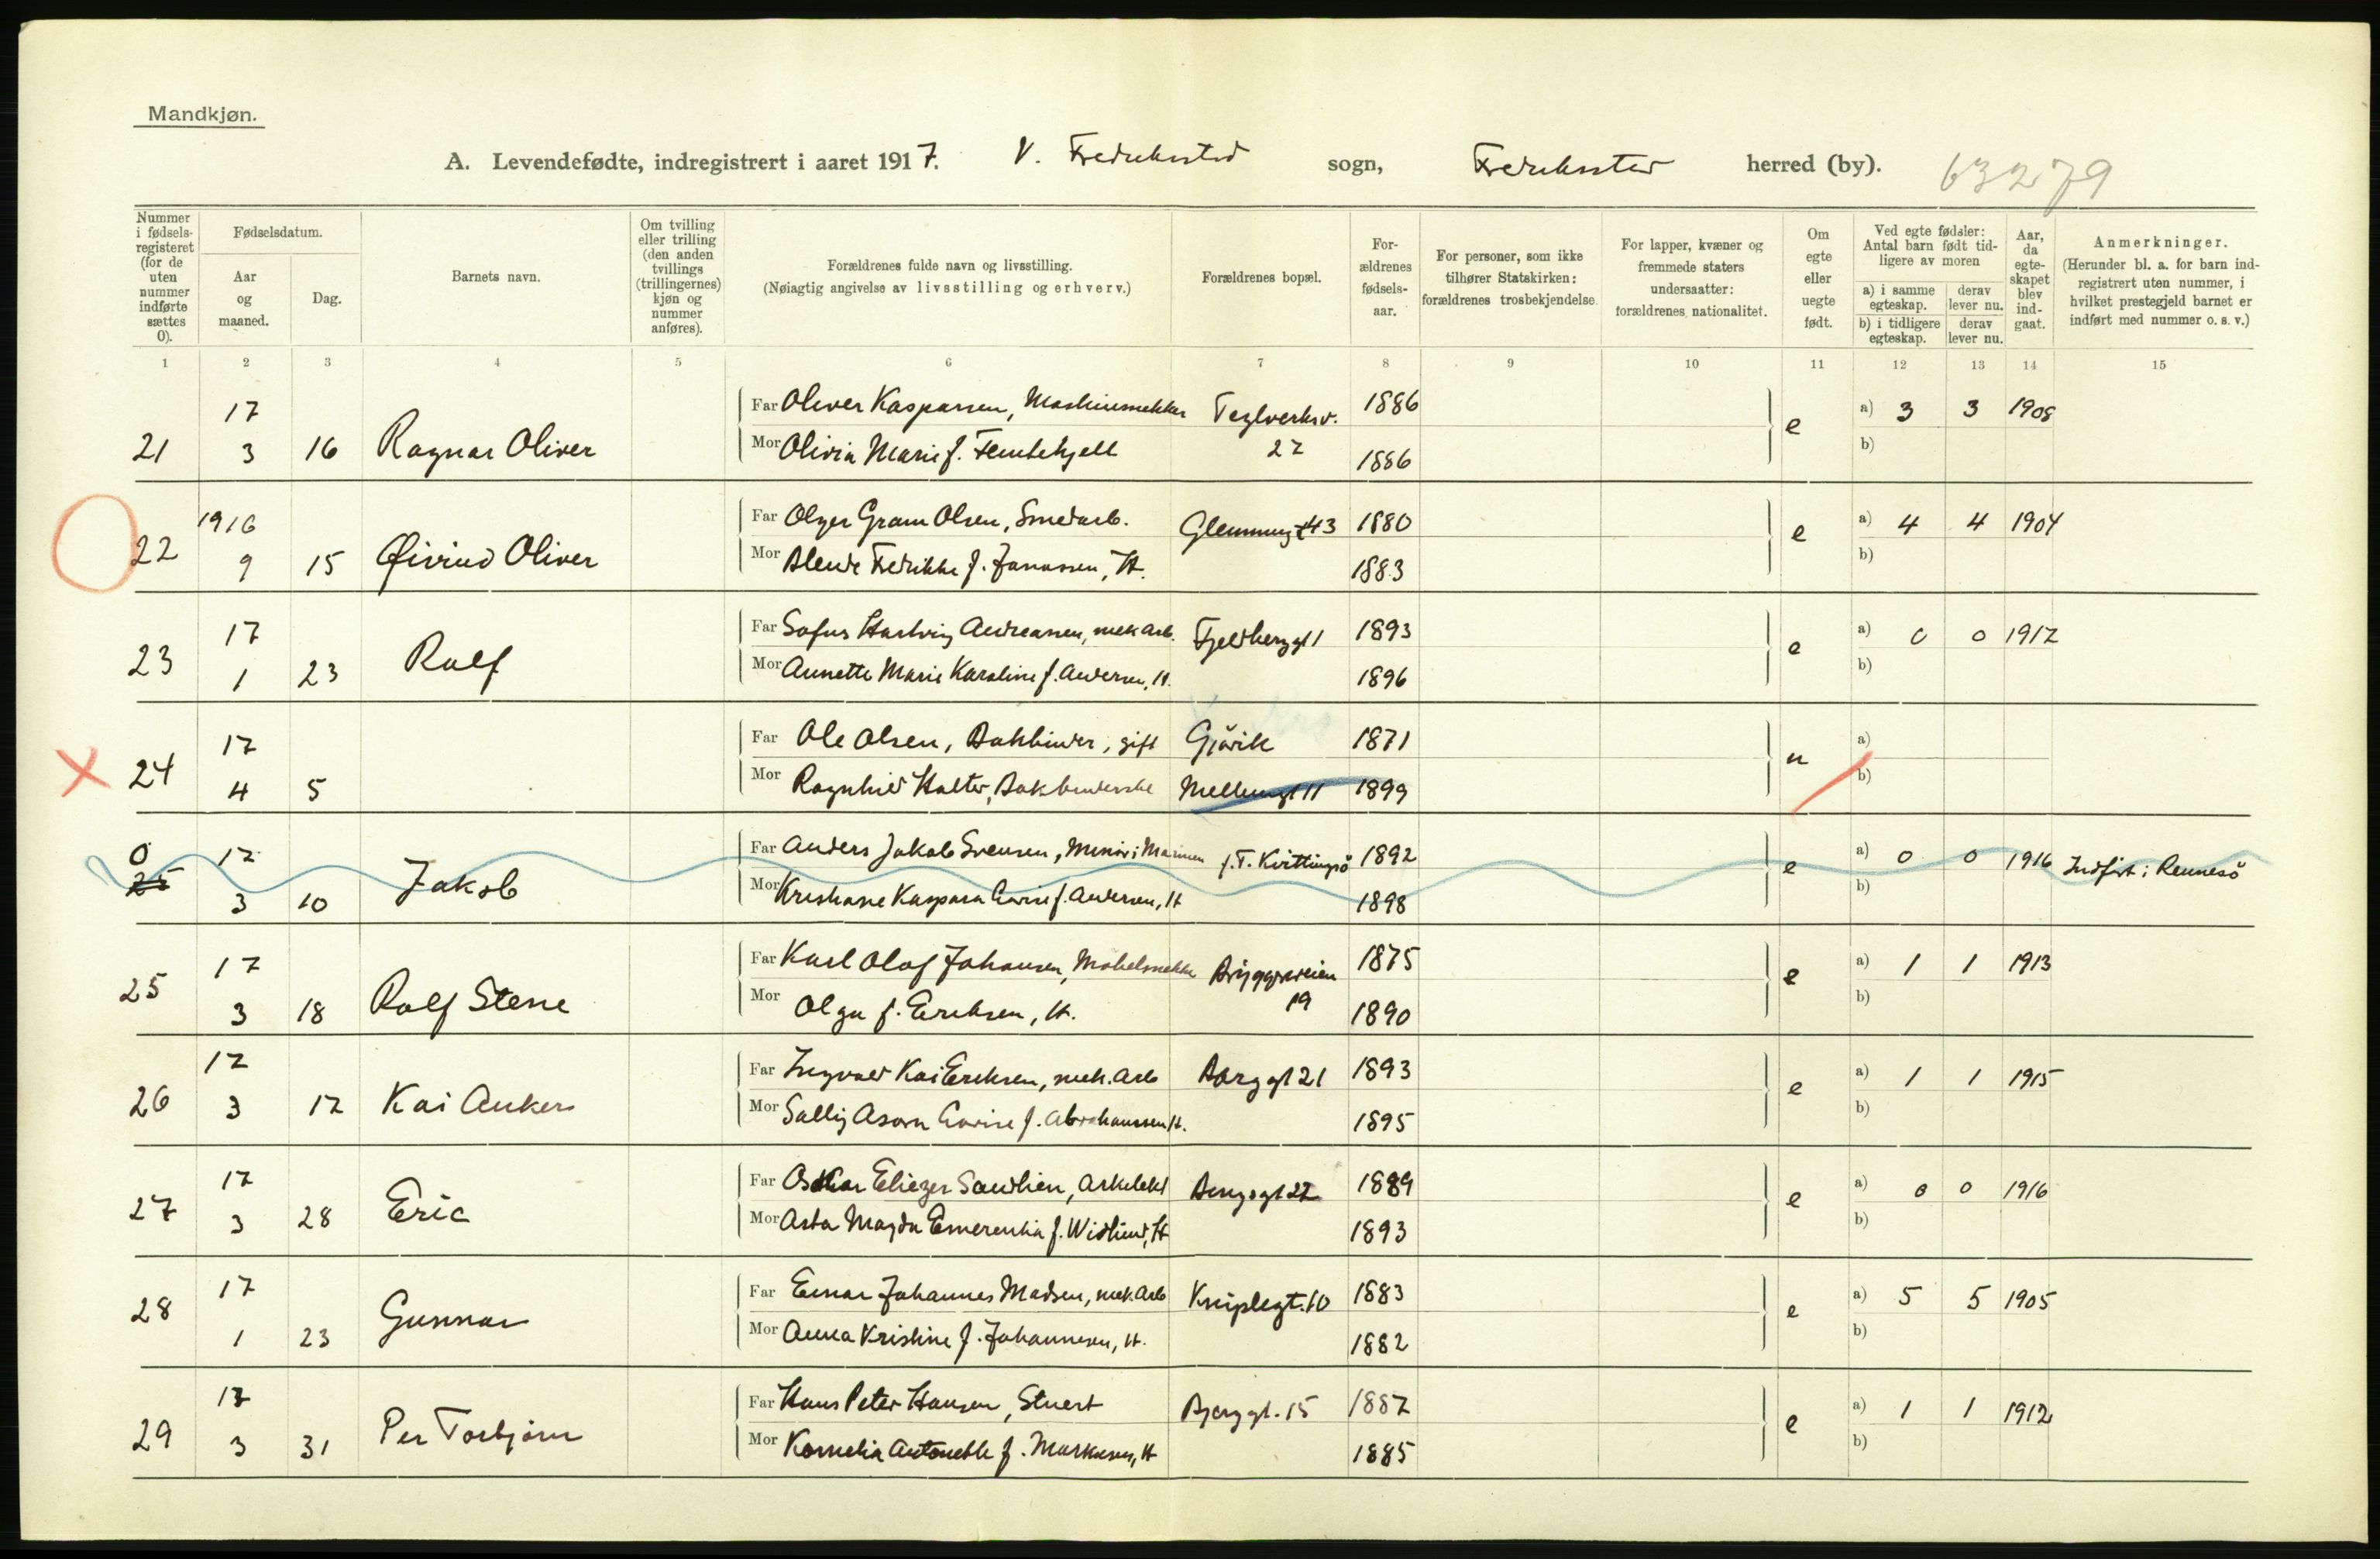 Mandkjøn.
A. Levendefødte, indregistrert i aaret 1917. V. Fredrikstad sogn, Fredrikstad herred (by). 63279
Nummer i fødsels-registeret (for de uten nummer indførte sættes 0).
Fødselsdatum.
Aar og maaned.
Dag.
Barnets navn.
Om tvilling eller trilling (den anden tvillings (trillingernes) kjøn og nummer anføres).
Forældrenes fulde navn og livsstilling.
(Nøiagtig angivelse av livsstilling og erhverv.)
Forældrenes bopæl.
For-ældrenes fødsels-aar.
For personer, som ikke tilhører Statskirken: forældrenes trosbekjendelse.
For lapper, kvæner og fremmede staters undersaatter: forældrenes nationalitet.
Om egte eller uegte født.
Ved egte fødsler: Antal barn født tid-ligere av moren
a) i samme egteskap.
derav lever nu.
b) i tidligere egteskap.
derav lever nu.
Aar, da egte-skapet blev ind-gaat.
Anmerkninger.
(Herunder bl. a. for barn ind-registrert uten nummer, i hvilket prestegjeld barnet er indført med nummer o. s. v.)
1 2 3 4 5 6 7 8 9 10 11 12 13 14 15
17 Far Oliver Kaspersen, Maskinsnekker Teglverksv. 1886 a) 3 3 1908
21 3 16 Ragnar Oliver Mor Olivia Marie f. 22 1886 e b)
1916 Far Olger Gram Olsen, Smedarb. Glemmengt 43 1880 a) 4 4 1904
22 9 15 Øivind Oliver Mor Fredrikke f. Jonassen, H. 1883 e b)
17 Far Sofus Hartvig Andreassen, mek arb. Fjeldberggt 1 1893 a) 0 0 1917
23 1 23 Rolf Mor Annette Marie Karoline f. Andersen, H. 1896 e b)
17 Far Ole Olsen, Bokbinder, gift Gjövik 1871 a)
24 4 5 Mor Ragnhild Holter, Bokbinderske Mellemgt 11 1899 u b)
0 17 Far Anders Jakob Svensen, Minör i Marinen f.T. Kvittingsö 1892 a) 0 0 1916 Indfört i Rennesö
25 3 10 Jakob Mor Kaspara f. Andersen, H 1898 e b)
17 Far Karl Olaf Johansen, Möbelsnekker Bryggeriveien 1875 a) 1 1 1913
25 3 18 Rolf Stene Mor Olga f. Eriksen, H. 19 1890 e b)
17 Far Ingvald Kai Eriksen, mek. arb Borggt 21 1893 a) 1 1 1915
26 3 17 Kai Anker Mor Sally f. Abrahamsen H. 1895 e b)
17 Far Oskar Eliezer Sandlien, Arkitekt 1889 a) 0 0 1916
27 3 28 Eric Mor Asta Magda Emerentia f. Widlund, H 1893 e b)
17 Far Einar Johannes Madsen, mek. arb Kniplegt. 10 1883 a) 5 5 1905
28 1 23 Gunnar Mor Anna Kristine f. Johannesen, H. 1882 e b)
17 Far Hans Peter Hansen, Stuert Bjerggt. 15 1887 a) 1 1 1912
29 3 31 Per Torbjørn Mor Kornelia Antonette f. Markusen, H 1885 e b)